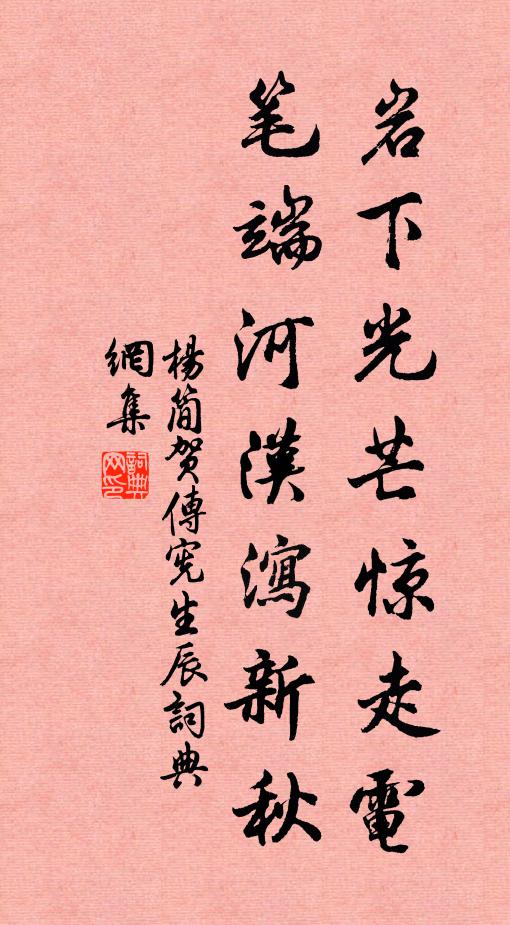 岩下光芒惊走電
笔端河漢瀉新秋
楊简贺傳宪生辰詞典
網集
詞典网印